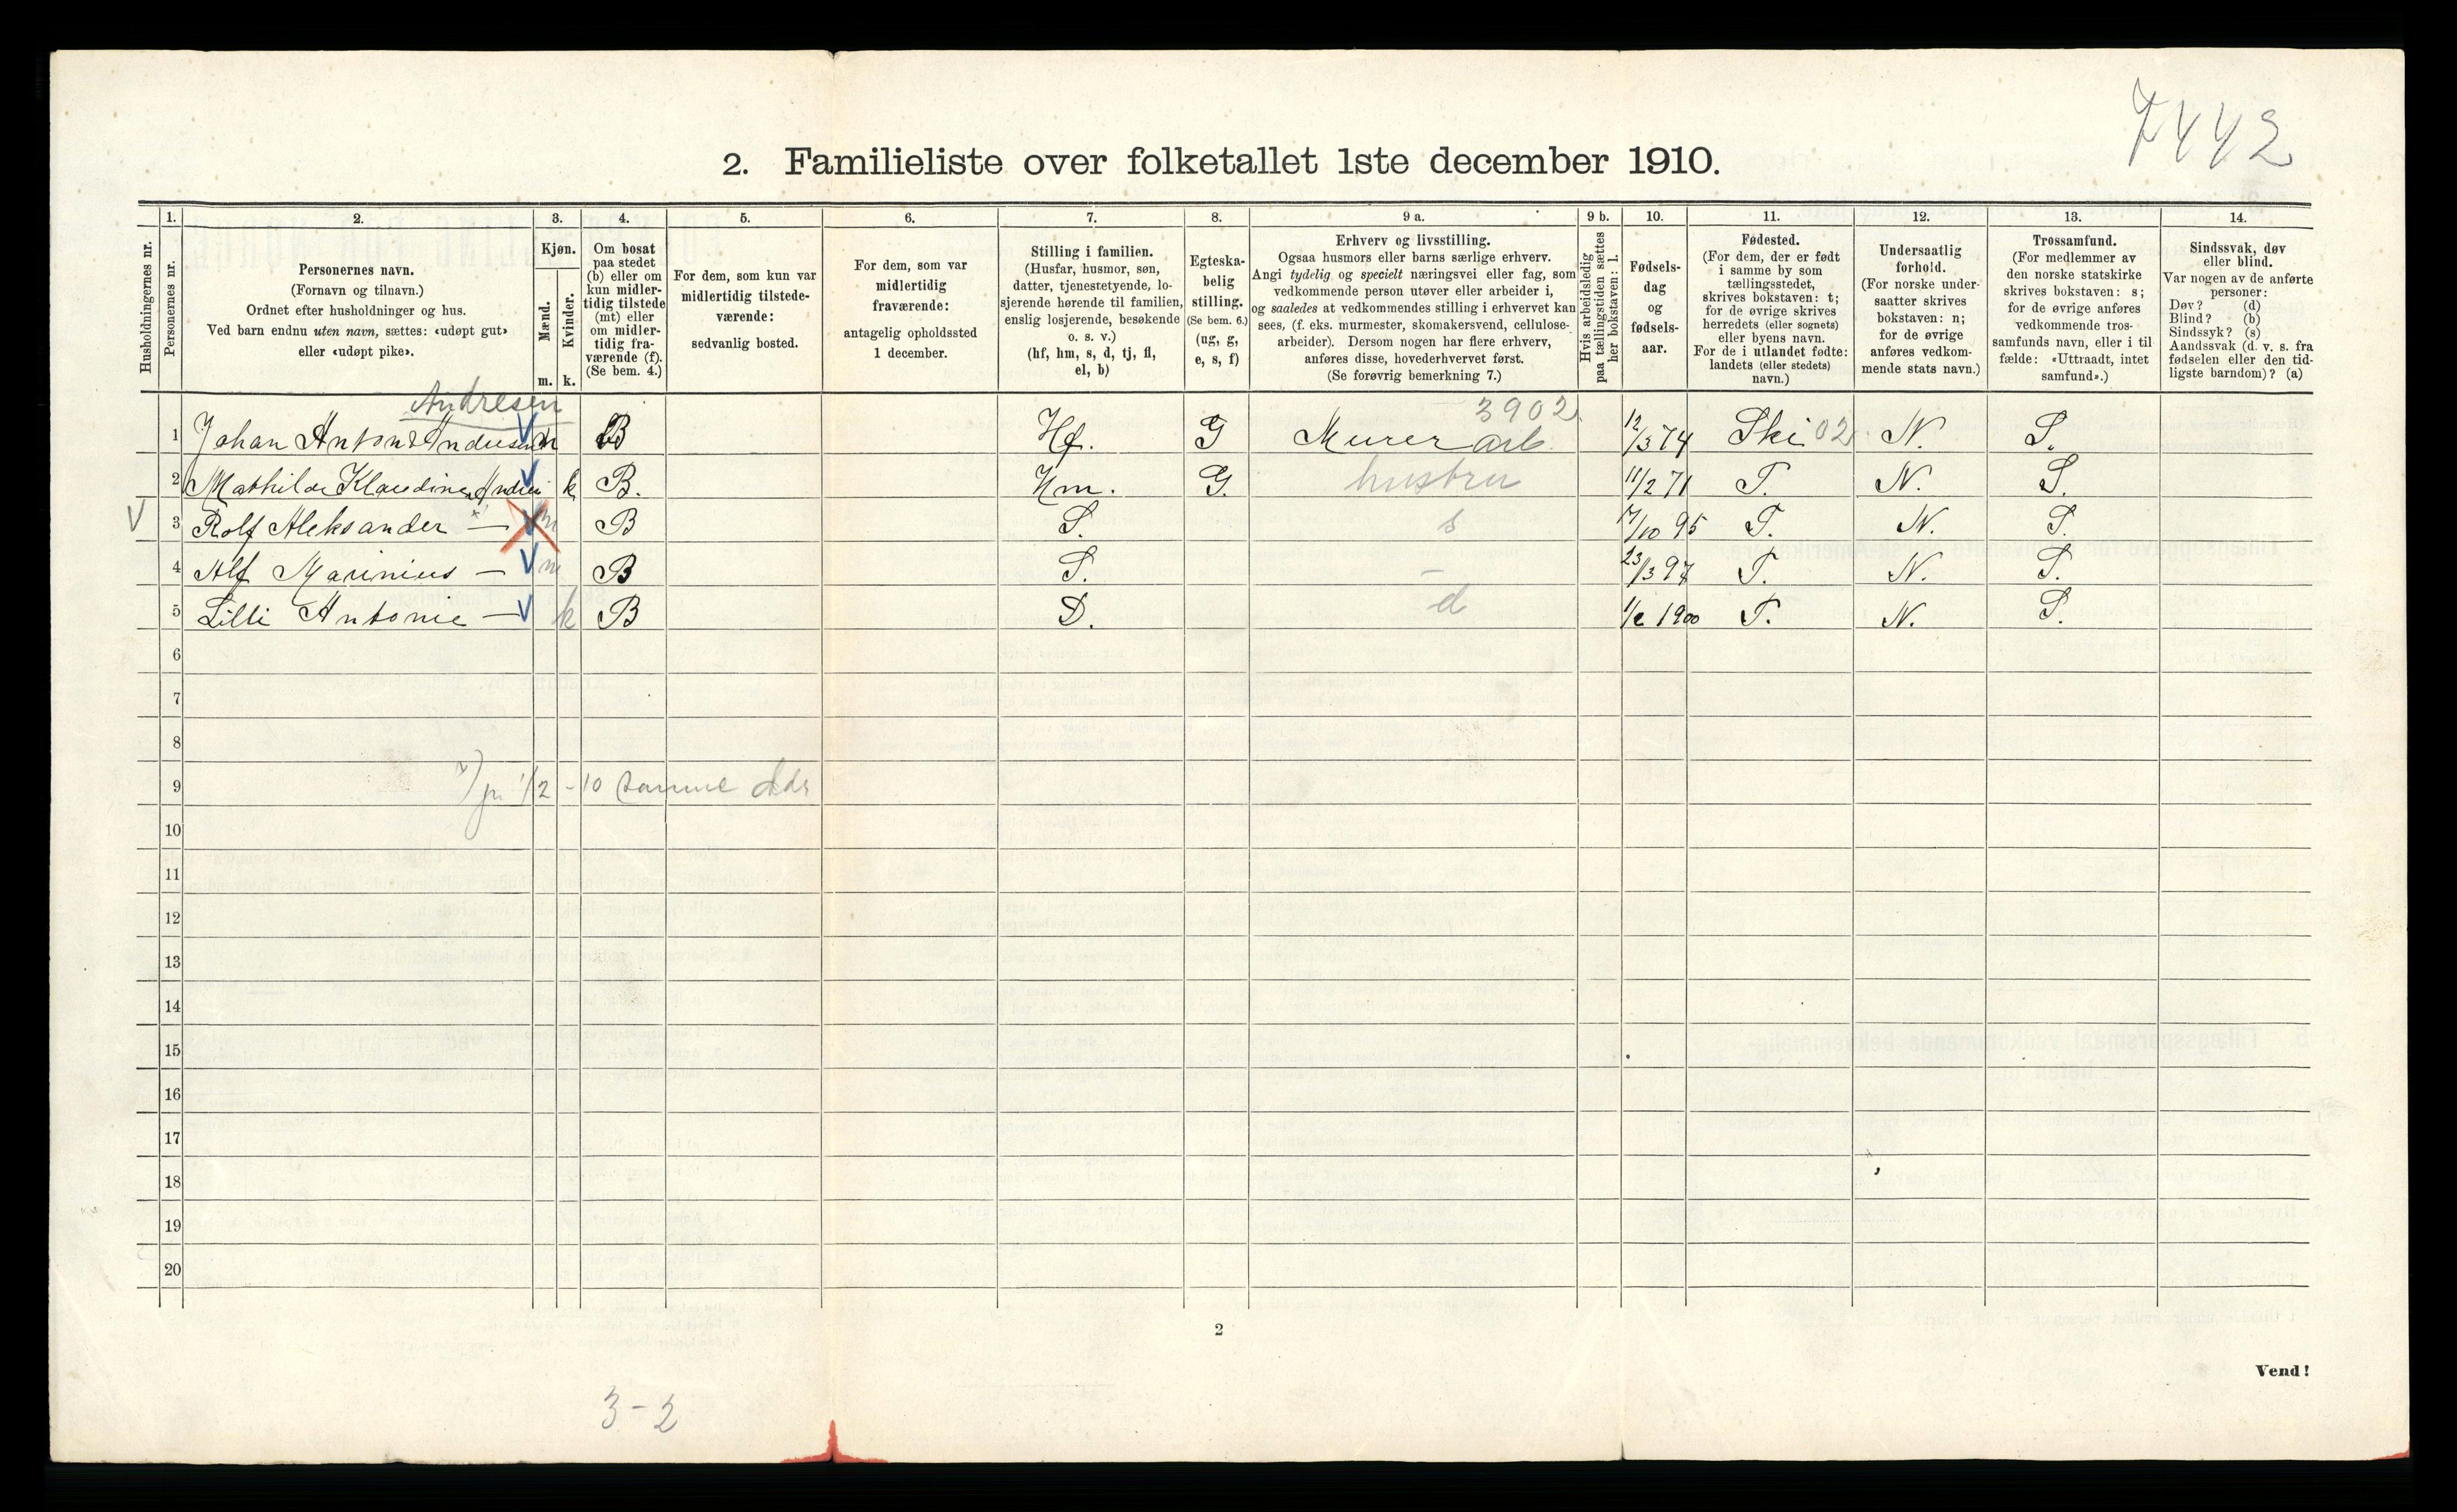 7442
2. Familieliste over folketallet 1ste december 1910.
Husholdningernes nr.
1. Personernes nr.
2. Personernes navn. (Fornavn og tilnavn.) Ordnet efter husholdninger og hus. Ved barn endnu uten navn, sættes: «udøpt gut» eller «udøpt pike».
3. Kjøn. Mænd. m. Kvinder. k.
4. Om bosat paa stedet (b) eller om kun midlertidig tilstede (mt) eller om midlertidig fraværende (f). (Se bem. 4.)
5. For dem, som kun var midlertidig tilstedeværende: sedvanlig bosted.
6. For dem, som var midlertidig fraværende: antagelig opholdssted 1 december.
7. Stilling i familien. (Husfar, husmor, søn, datter, tjenestetyende, losjerende hørende til familien, enslig losjerende, besøkende o. s. v.) (hf, hm, s, d, tj, fl, el, b)
8. Egteskabelig stilling. (Se bem. 6.) (ug, g, e, s, f)
9 a. Erhverv og livsstilling. Ogsaa husmors eller barns særlige erhverv. Angi tydelig og specielt næringsvei eller fag, som vedkommende person utøver eller arbeider i, og saaledes at vedkommendes stilling i erhvervet kan sees, (f. eks. murmester, skomakersvend, cellulosearbeider). Dersom nogen har flere erhverv, anføres disse, hovederhvervet først. (Se forøvrig bemerkning 7.)
9 b. Hvis arbeidsledig paa tællingstiden sættes her bokstaven: l.
10. Fødselsdag og fødselsaar.
11. Fødested. (For dem, der er født i samme by som tællingsstedet, skrives bokstaven: t; for de øvrige skrives herredets (eller sognets) eller byens navn. For de i utlandet fødte: landets (eller stedets) navn.)
12. Undersaatlig forhold. (For norske undersaatter skrives bokstaven: n; for de øvrige anføres vedkommende stats navn.)
13. Trossamfund. (For medlemmer av den norske statskirke skrives bokstaven: s; for de øvrige anføres vedkommende trossamfunds navn, eller i tilfælde: «Uttraadt, intet samfund».)
14. Sindssvak, døv eller blind. Var nogen av de anførte personer: Døv? (d) Blind? (b) Sindssyk? (s) Aandssvak (d. v. s. fra fødselen eller den tidligste barndom)? (a)
Andresen 3902
1 Johan Anton Andresen m B Hf. G Murer arb. 12/3 74 Ski 02 N. S.
2 Mathilde Klaudine k B. Hm. G. hustru 11/2 71 T. N. S.
3 Rolf Aleksander — m B S. s 17/10 95 T. N. S.
4 Alf Marinius — m B S. — 23/3 97 T. N. S.
5 Lilli Antonie — k B D. d 1900 T. N. S.
6
7
8
9 1/2 - 10 samme Adr
10
11
12
13
14
15
16
17
18
19
20
2
Vend!
3-2